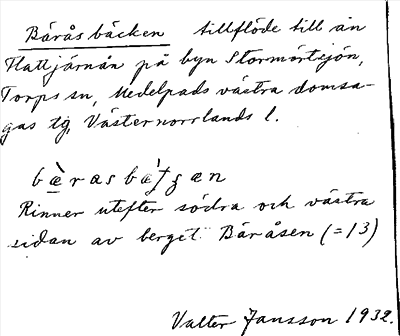 Bäråsbäcken tillflöde till ån
Flattjärnån på byn Stormörtsjön,
Torps sn, Medelpads västra domsa-
gas tg, Västernorrlands l.
Rinner utefter södra och västra
sidan av berget Bäråsen (=13)
Valter Jansson 1932.